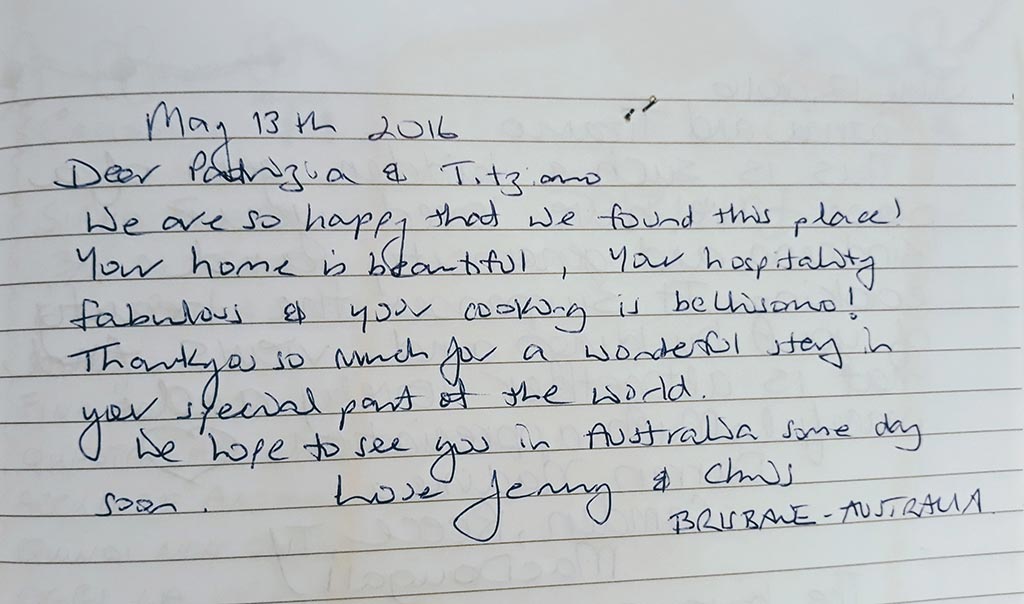 May 13th 2016
Dear Patrizia & Titziano
We are so happy that we found this place!
Your home is beautiful, your hospitality
fabulous & your cooking is bellisomo!
Thankyou so much for a wonderful stay in
your special part of the world.
We hope to see you in Australia some day
soon. Love Jenny & Chris
BRISBANE - AUSTRALIA.